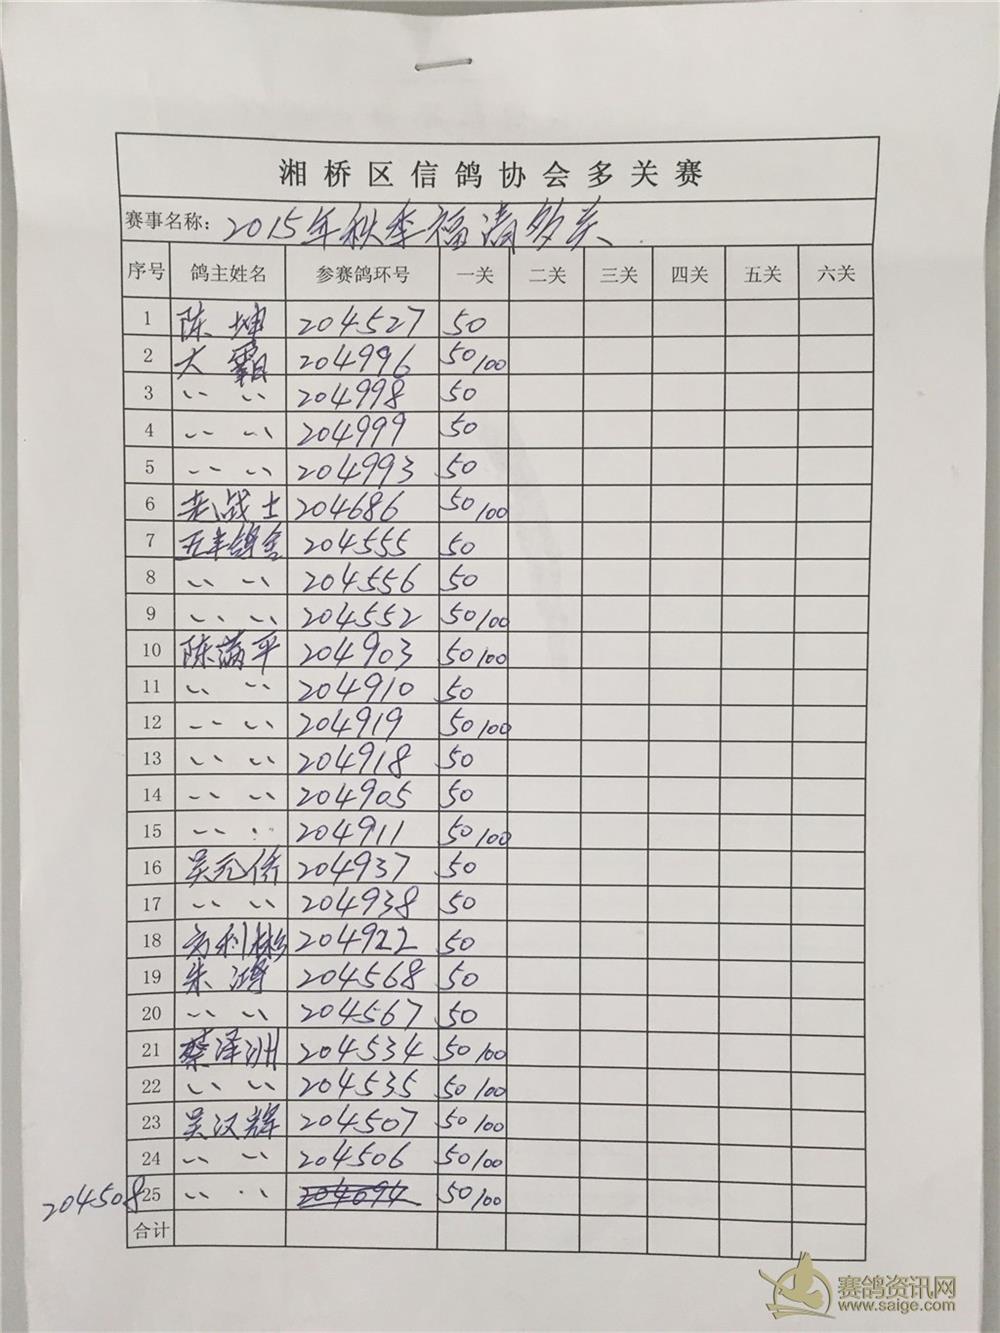 湘桥区信鸽协会多关赛
赛事名称: 2015年秋季福清多关
序号 鸽主姓名 参赛鸽环号 一关 二关 三关 四关 五关 六关
1 陈坤 204527 50
2 大霸 204996 50/100
3 〃 〃 204998 50
4 〃 〃 204999 50
5 〃 〃 204993 50
6 老战士 204686 50/100
7 五丰鸽舍 204555 50
8 〃 〃 204556 50
9 〃 〃 204552 50/100
10 陈满平 204903 50/100
11 〃 〃 204910 50
12 〃 〃 204919 50/100
13 〃 〃 204918 50
14 〃 〃 204905 50
15 〃 〃 204911 50/100
16 吴元侨 204937 50
17 〃 〃 204938 50
18 方利彬 204922 50
19 朱鸿 204568 50
20 〃 〃 204567 50
21 蔡泽洲 204534 50/100
22 〃 〃 204535 50/100
23 吴汉辉 204507 50/100
24 〃 〃 204506 50/100
204508 25 〃 〃 204694 50/100
合计
赛鸽资讯网
www.saige.com